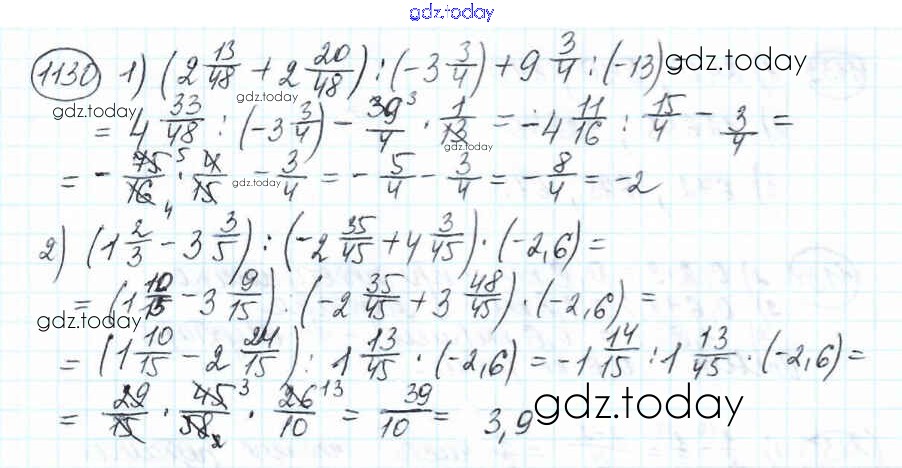 gdz.today
1130 1) (2 13/48 + 2 20/48) : (-3 3/4) + 9 3/4 : (-13) =
gdz.today
gdz.today
gdz.today
= 4 33/48 : (-3 3/4) - 39/4 3 · 1/13 = -4 11/16 : 15/4 - 3/4 =
= - 75/16 5 4 · 4/15 - 3/4 = - 5/4 - 3/4 = - 8/4 = -2
gdz.today
2) (1 2/3 - 3 3/5) : (-2 35/45 + 4 3/45) · (-2,6) =
= (1 10/15 - 3 9/15) : (-2 35/45 + 3 48/45) · (-2,6) =
gdz.today
= (1 10/15 - 2 24/15) : 1 13/45 · (-2,6) = -1 14/15 : 1 13/45 · (-2,6) =
= 29/15 · 45/58 3 2 · 26/10 13 = 39/10 = 3,9
gdz.today